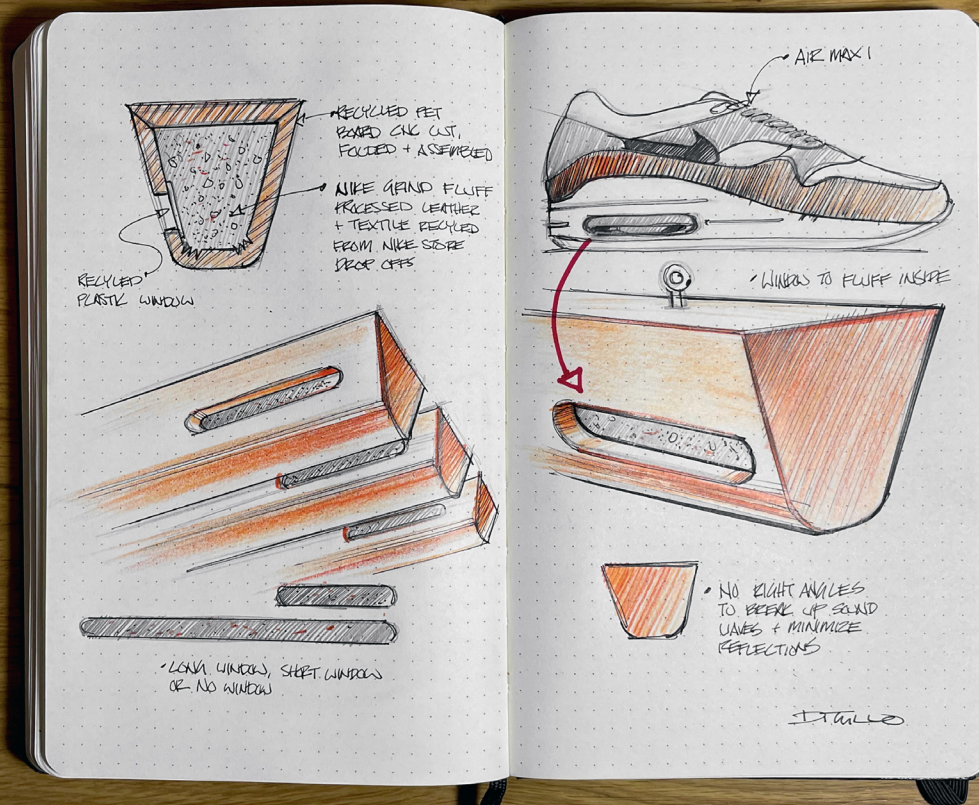 • RECYCLED PET
BOARD CNC CUT,
FOLDED + ASSEMBLED
• NIKE GRIND FLUFF
PROCESSED LEATHER
+ TEXTILE RECYLED
FROM NIKE STORE
DROP OFFS
RECYLED
PLASTIC WINDOW
• LONG WINDOW, SHORT WINDOW
OR NO WINDOW
• AIR MAX 1
• WINDOW TO FLUFF INSIDE
• NO RIGHT ANGLES
TO BREAK UP SOUND
WAVES + MINIMIZE
REFLECTIONS